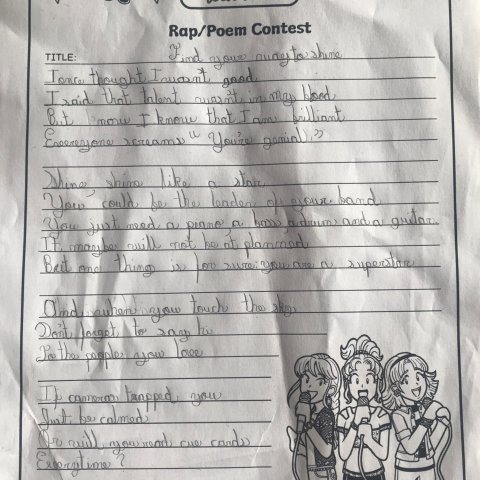 Rap/Poem Contest
TITLE: Find your way to shine
I once thought I wasn't good
I said that talent wasn't in my blood
But now I know that I am brilliant
Everyone screams " You're genial "
Shine, shine like a star
You could be the leader of your band
You just need a piano a bass a drum and a guitar
It maybe will not be at planned
But one thing is for sure: you are a superstar
And when you touch the sky
Don't forget to say hi
To the people you love
If cameras trapped you
Just be calmed
Or will you read cue cards
Everytime?